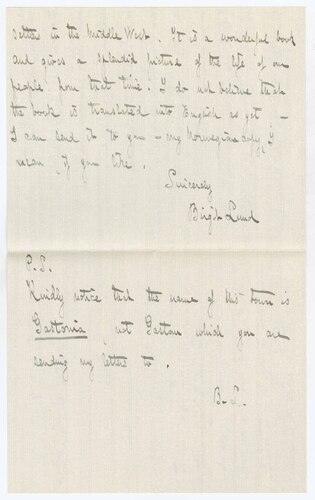 settler in the Middle West. It is a wonderful book
and gives a splendid picture of the life of our
people from that time. I do not believe that
the book is translated into English as yet -
I can send it to you - my Norwegian copy, I
mean, if you like.
Sincerely
Birgit Lund
P.S.
Kindly notice that the name of this town is
Gastonia, not Gaston which you are
sending my letters to.
B. L.